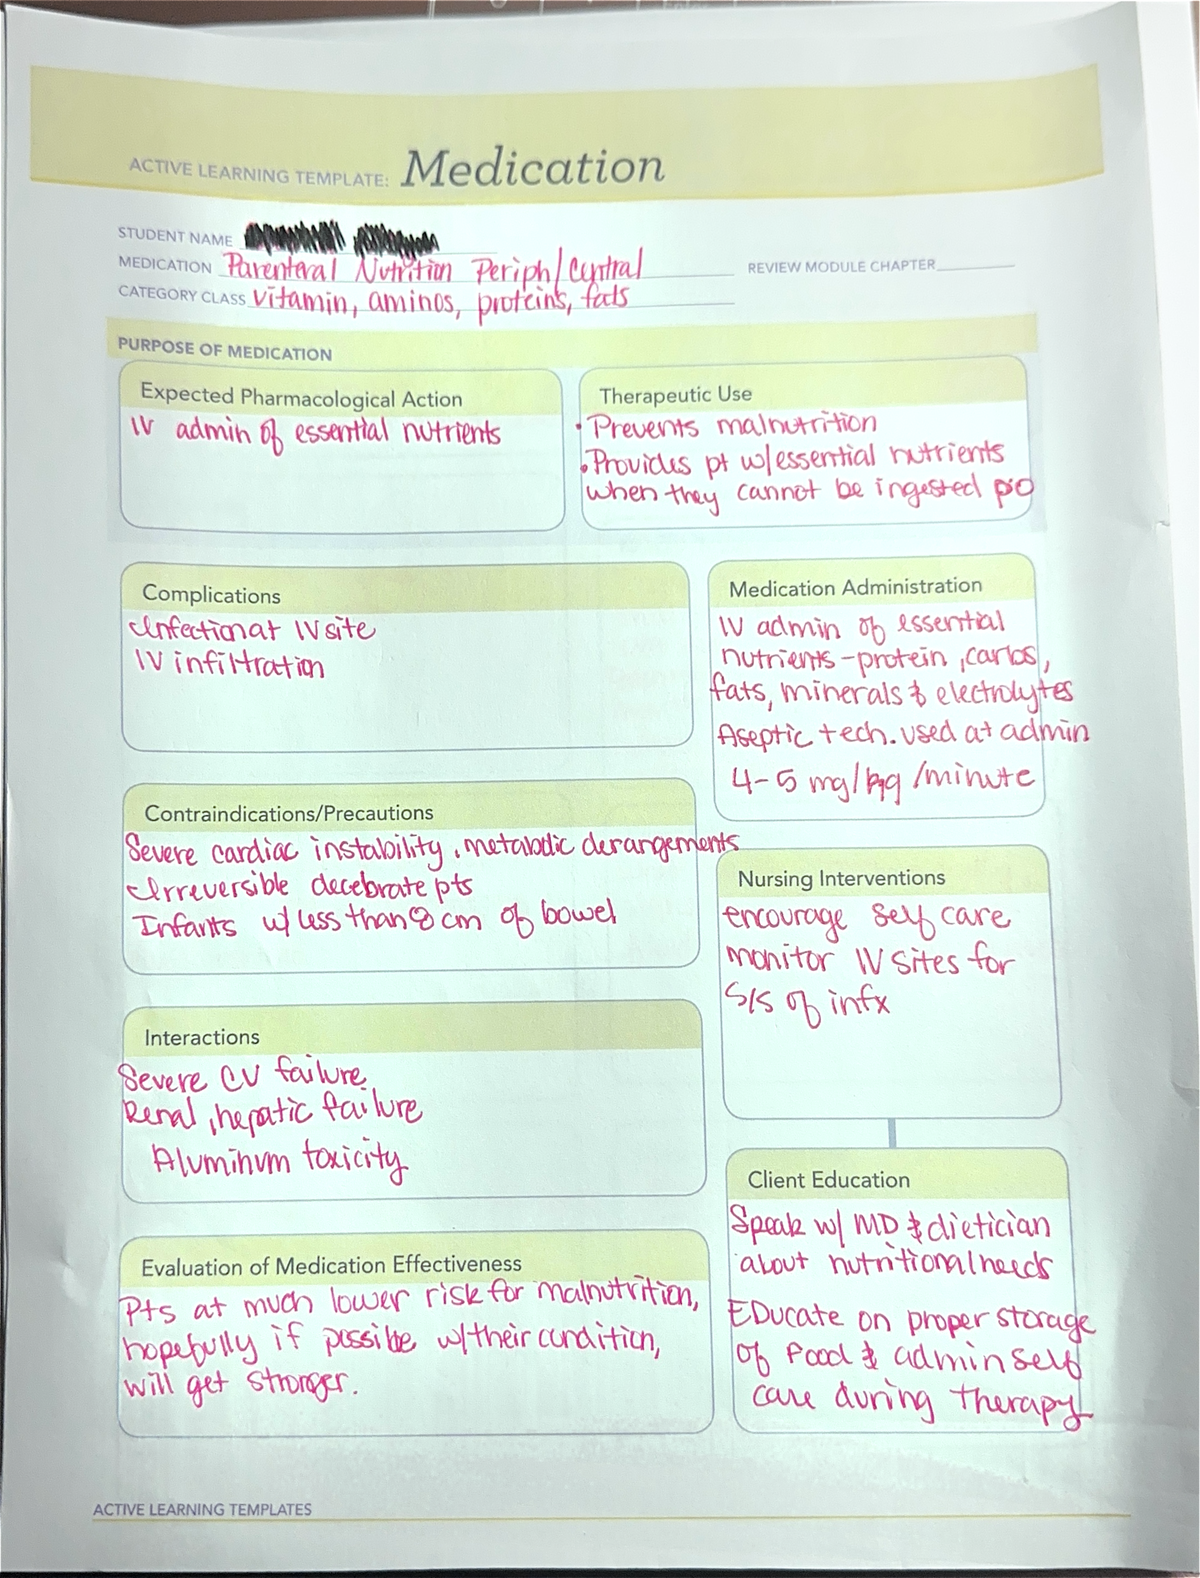 ACTIVE LEARNING TEMPLATE: Medication
STUDENT NAME
MEDICATION Parenteral Nutrition Periph/Central
REVIEW MODULE CHAPTER
CATEGORY CLASS vitamin, aminos, proteins, fats
PURPOSE OF MEDICATION
Expected Pharmacological Action
IV admin of essential nutrients
Therapeutic Use
• Prevents malnutrition
• Provides pt w/essential nutrients
when they cannot be ingested po
Complications
Infection at IV site
IV infiltration
Medication Administration
IV admin of essential
nutrients - protein, carbs,
fats, minerals & electrolytes
Aseptic tech. used at admin
4-5 mg/kg/minute
Contraindications/Precautions
Severe cardiac instability, metabolic derangements
Irreversible decebrate pts
Infants w/ less than 8 cm of bowel
Nursing Interventions
encourage self care
monitor IV sites for
S/S of infx
Interactions
Severe CV failure
Renal, hepatic failure
Aluminum toxicity
Client Education
Speak w/ MD & dietician
about nutritional needs
Educate on proper storage
of food & admin self
care during therapy
Evaluation of Medication Effectiveness
Pts at much lower risk for malnutrition,
hopefully if possible w/their condition,
will get stronger.
ACTIVE LEARNING TEMPLATES